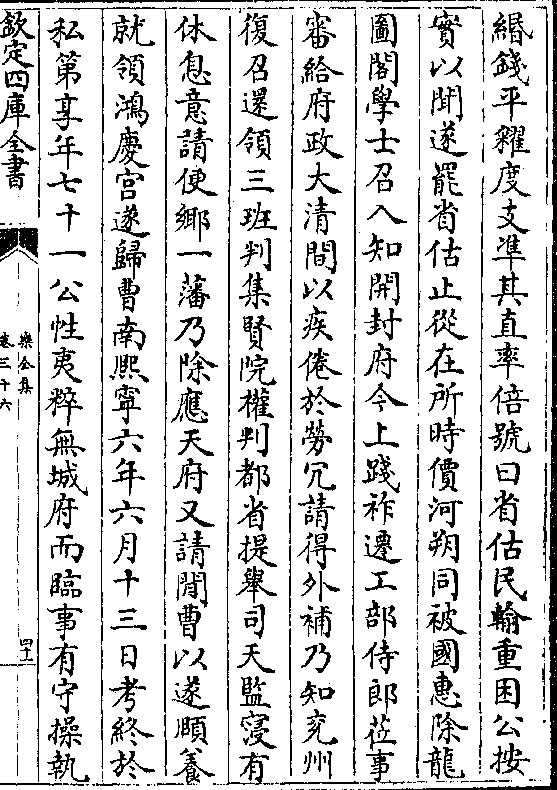 緡錢平糴度支凖其直率倍號曰省估民輸重困公按
實以聞遂罷省估止從在所時價河朔同被國惠除龍
圖閣學士召入知開封府今上踐祚遷工部侍郎蒞事
審給府政大清間以疾倦於勞冗請得外補乃知兖州
復召還領三班判集賢院權判都省提舉司天監寖有
休息意請便鄉一藩乃除應天府又請閒曹以遂頤養
就領鴻慶宫遂歸曹南熙寧六年六月十三日考終於
私第享年七十一公性夷粹無城府而臨事有守操執
欽定四庫全書
樂全集
卷三十六
四十一